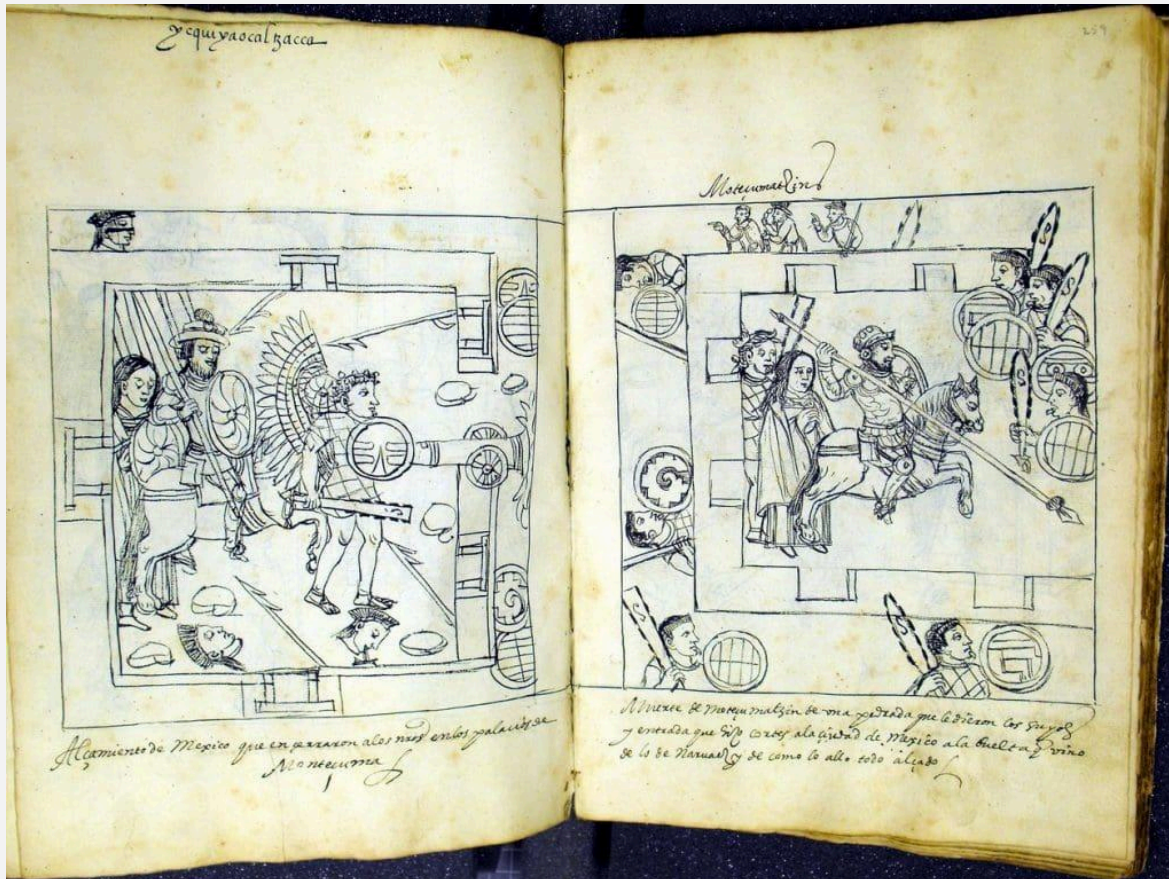 ycquiyaocaltzacca
Alçamiento de Mexico que encerraron a los nros en los palacios de
Monteçuma
259
Moteçumatzin
Muerte de moteçumatzin de vna pedrada que le dieron los suyos
y entrada que hizo cortes a la ciudad de mexico a la buelta q vino
de lo de Narvaez y de como lo allo todo alçado